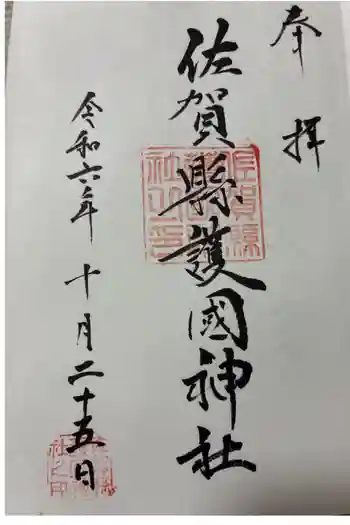 奉拝
佐賀縣護國神社
令和六年十月二十五日
佐賀縣護國神社之印